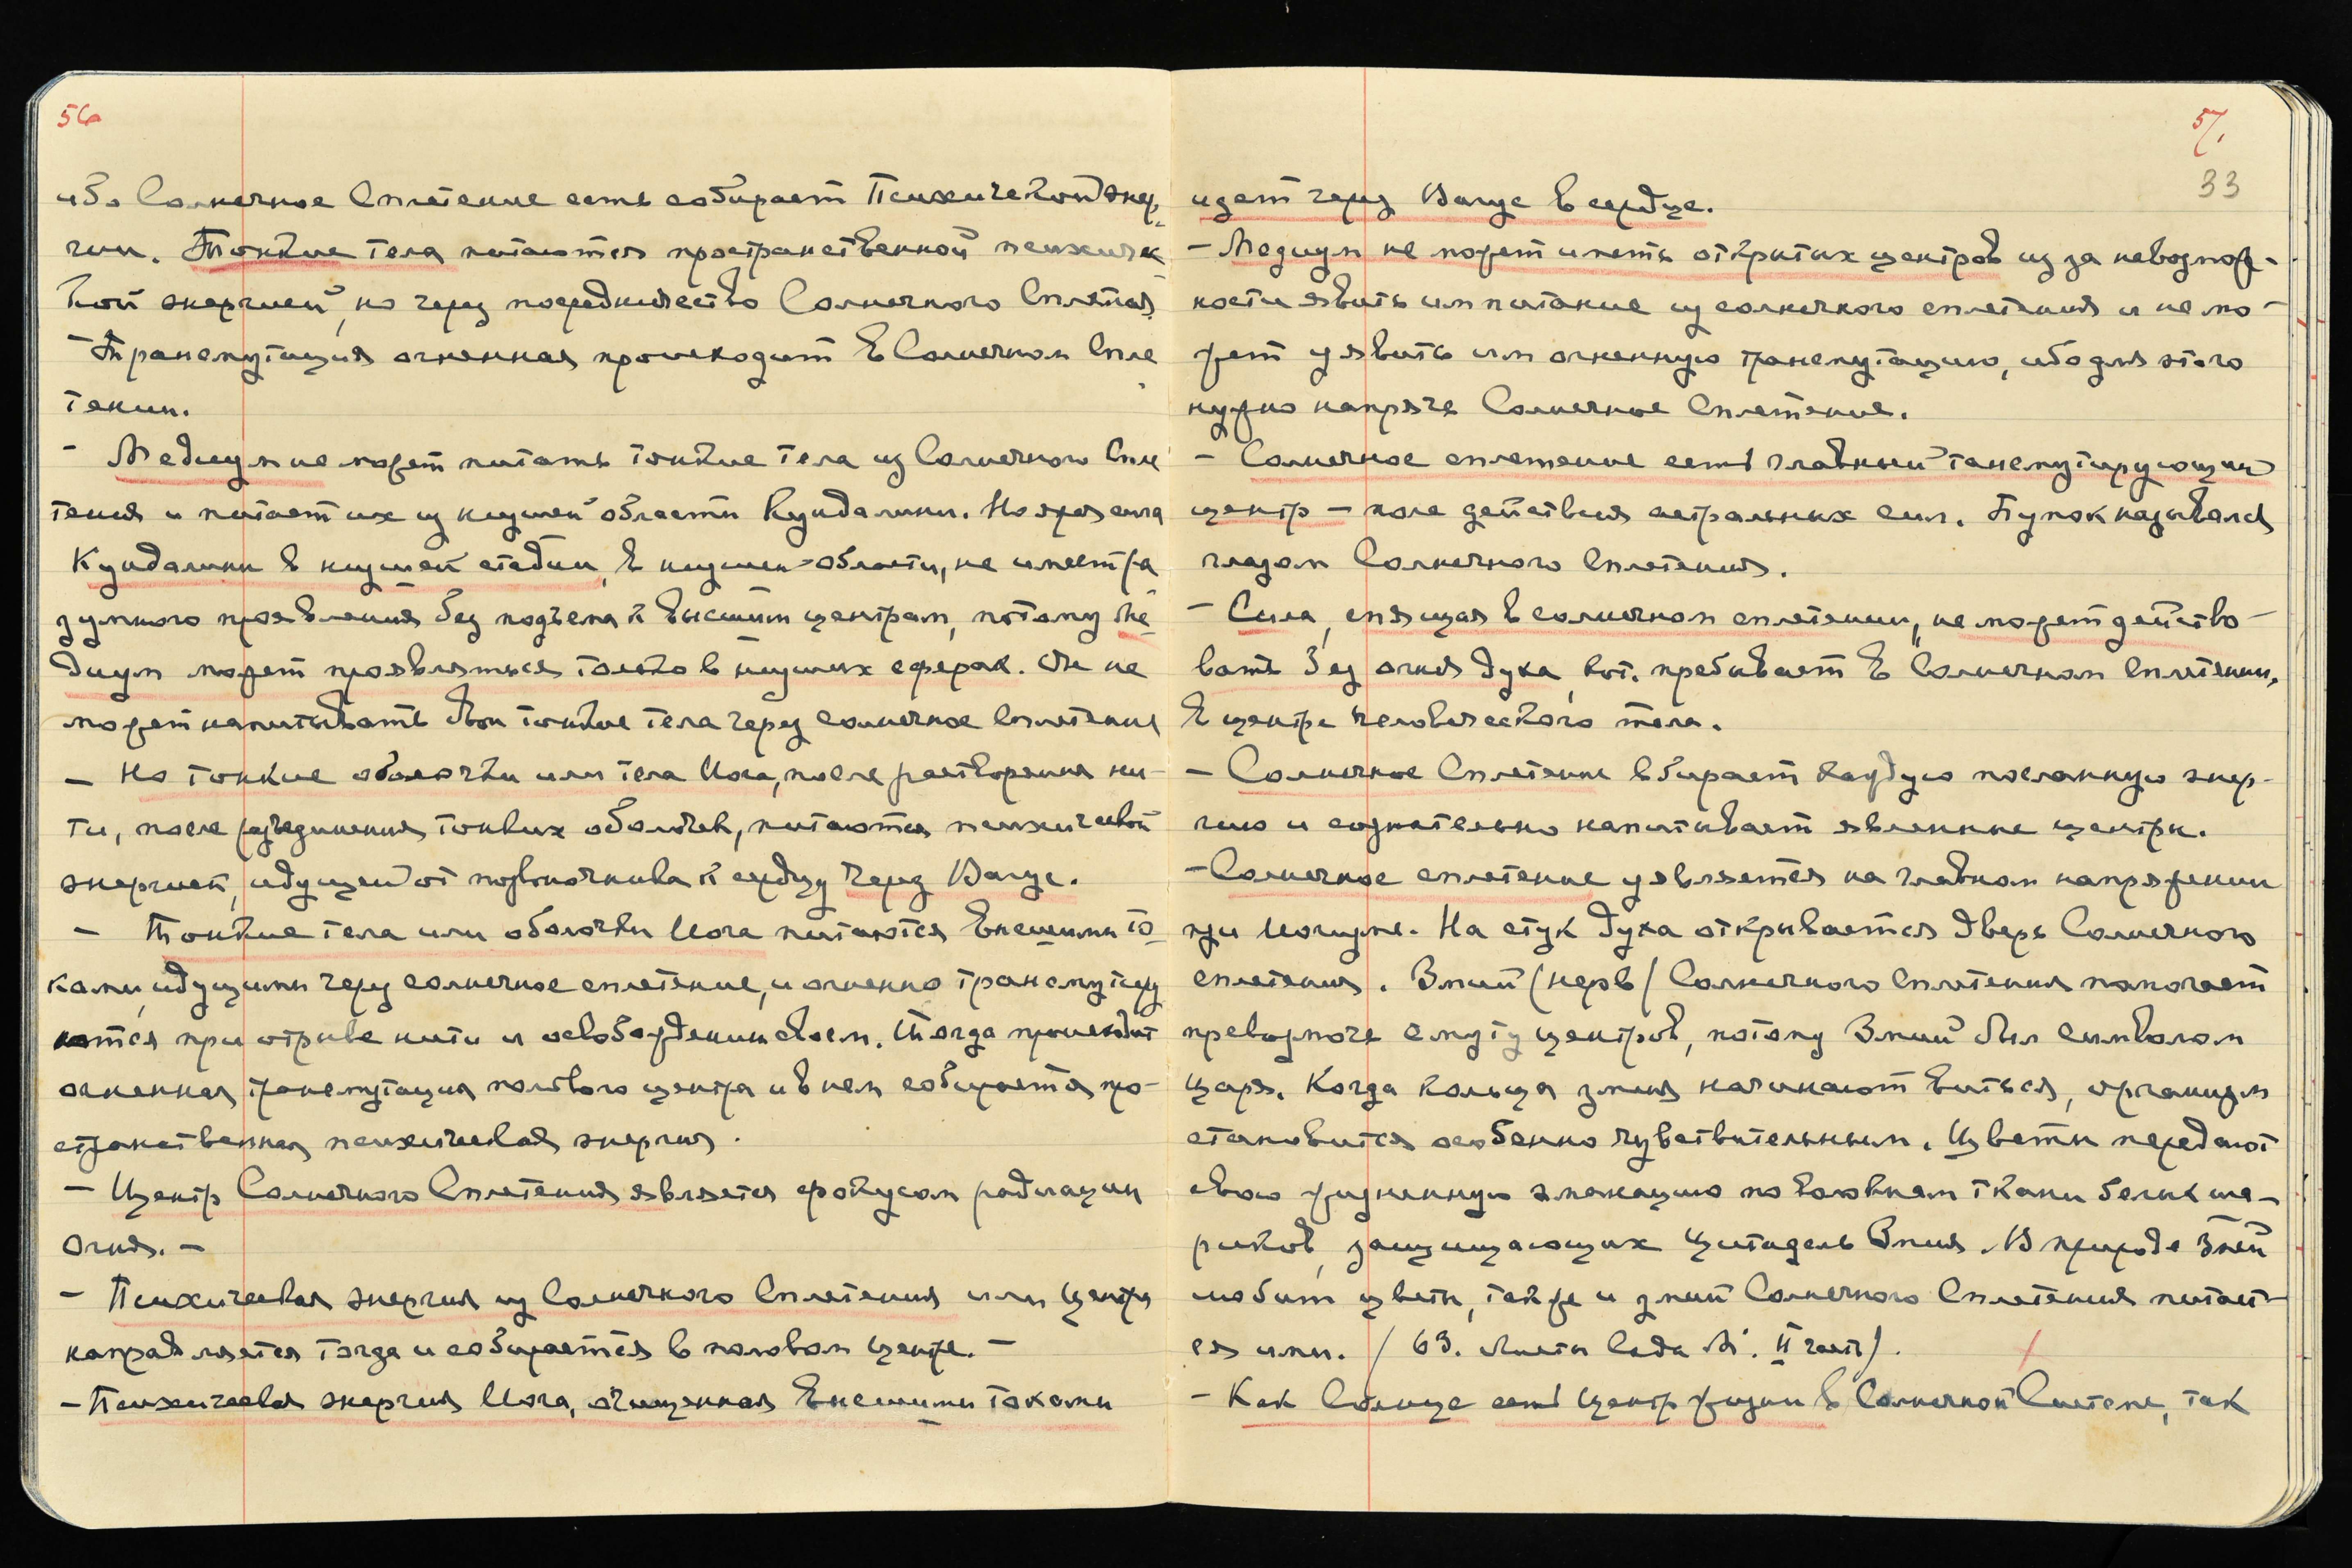 56
ибо Солнечное Сплетение есть собират Психической энер-
гии. Тонкие тела питаются пространственной психичес
кой энергией, но через посредничество Солнечного Сплетен.
- Трансмутация огненная происходит в Солнечном Спле
тении.
- Медиум не может питать тонкие тела из Солнечного Спле
тения и питает их из низшей области Кундалини. Но эта сила
Кундалини в низшей стадии, в низшей области, не имеет ра
зумного проявления без подъема к высшим центрам, потому Ме
диум может проявляться только в низших сферах. Он не
может напитывать свои тонкие тела через солнечное Сплетение
- Но тонкие оболочки или тела Йога, после растворения ни-
ти, после разъединения тонких оболочек, питаются психической
энергией, идущей от позвоночника к сердцу через Вагус.
- Тонкие тела или оболочки Йога питаются внешними то
ками, идущими через солнечное сплетение, и огненно трансмутиру
ются при отрыве нити и освобождении своем. Тогда происходит
огненная трансмутация полового центра и в нем собирается про-
странственная психическая энергия.
- Центр Солнечного Сплетения является фокусом радиации
Огня. -
- Психическая энергия из Солнечного Сплетения или Центра
направляется тогда и собирается в половом центре. -
- Психическая энергия Йога, очищенная внешними токами
57.
33
идет через Вагус в сердце.
- Медиум не может иметь открытых центров из за невозмож-
ности явить им питание из солнечного сплетения и не мо-
жет уявить им огненную трансмутацию, ибо для этого
нужно напрячь Солнечное Сплетение.
- Солнечное сплетение есть главный танемутирующий
центр - поле действия астральных сил. Пупок назывался
глазом Солнечного Сплетения.
- Сила, спящая в солнечном сплетении, не может действо-
вать без огня духа, кот. пребывает в Солнечном Сплетении,
в центре человеческого тела.
- Солнечное Сплетение вбирает каждую посланную энер-
гию и сознательно напитывает явленные центры.
- Солнечное сплетение уявляется на главном напряжении
при Йогизме. На стук Духа открывается дверь Солнечного
сплетения. Змий (нерв) Солнечного Сплетения помогает
превозмочь смуту центров, потому Змий был символом
Царя. Когда кольца змия начинают виться, организм
становится особенно чувствительным. Цветы передают
свою жизненную эманацию по волокнам ткани белых ша-
риков, защищающих Цитадель Змия. В природе Змеи
любят цветы, также и змий Солнечного Сплетения питает-
ся ими. (63. Листы Сада М. II часть).
- Как Солнце есть Центр жизни в Солнечной Системе, так